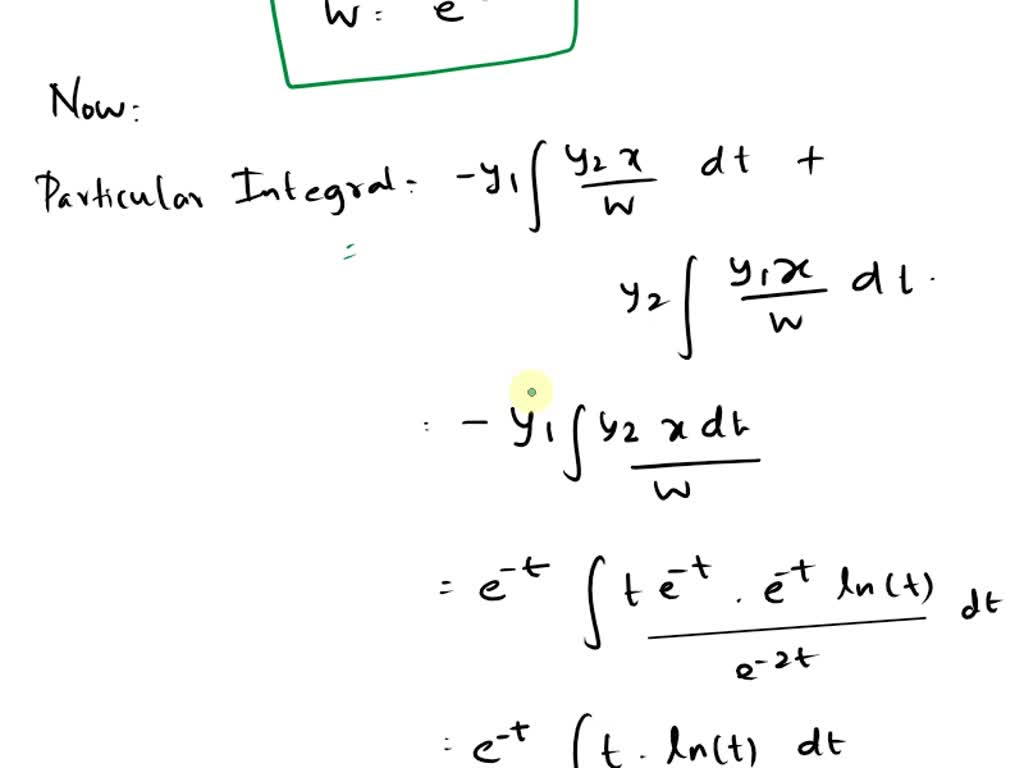 W = e
Now:
Particular Integral: -y₁∫ y₂ x / W dt +
=
y₂ ∫ y₁x / W dt.
: - y₁ ∫ y₂ x dt / W
= e^-t ∫ t e^-t . e^-t ln(t) / e^-2t dt
= e^-t ∫ t . ln(t) dt